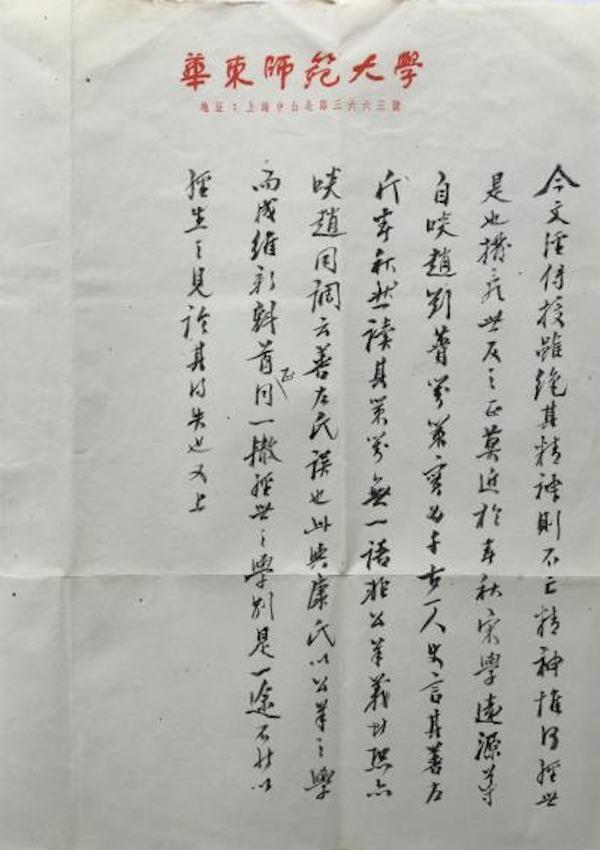 華東師範大學
地址：上海中山北路三六六三號
今文經傳授雖絕其精神則不亡精神惟何經世
是也撥亂世反之正莫近於春秋宋學遠源导
自啖趙劉蕡對策實為千古一人史言其善左
氏春秋然讀其策對無一語非公羊義亦
啖趙同調云善左氏誤也此與康氏以公羊之學
而成維新正同一撤經世之學別是一途不能以
經生之見論其得失也又上